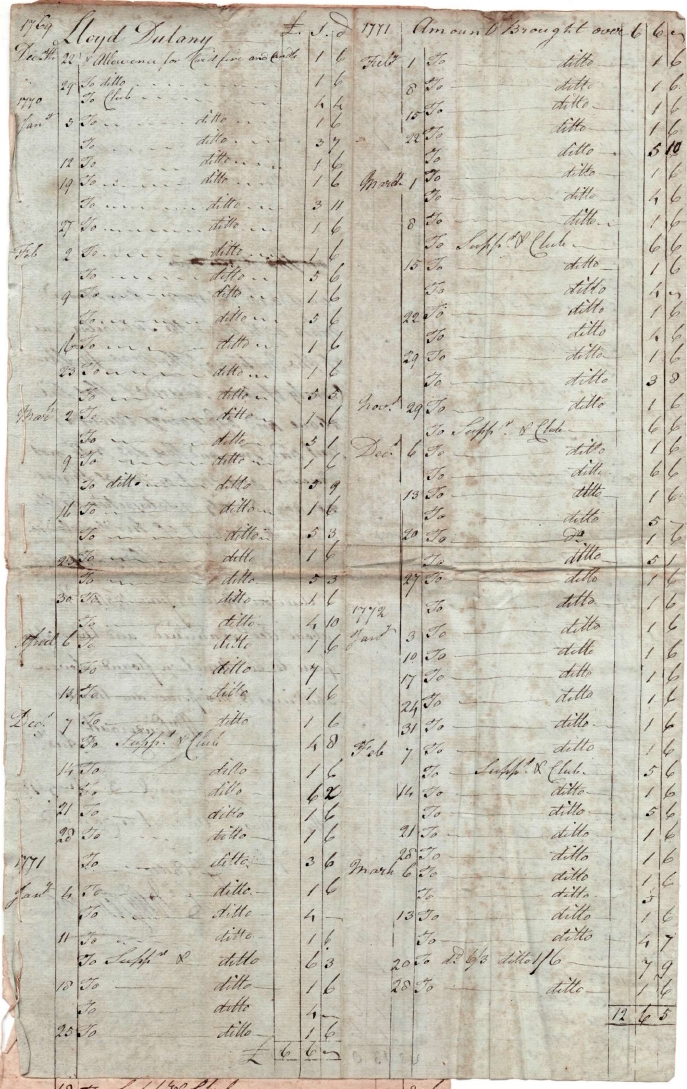 1769 Lloyd Dulany £. S. d
Decbr 22 & Allowance for Card fire and Cards 1 6
29 To ditto 1 6
To Club 4 4
1770
Jany 5 To ditto 1 6
To ditto 3 7
12 To ditto 1 6
19 To ditto 1 6
To ditto 3 11
27 To ditto 1 6
Feb 2 To ditto 1 6
To ditto 5 6
9 To ditto 1 6
To ditto 5 6
16 To ditto 1 6
23 To ditto 1 6
To ditto 5 3
March 2 To ditto 1 6
To ditto 5 1
9 To ditto 1 6
To ditto ditto 5 9
16 To ditto 1 6
To ditto 5 3
23 To ditto 1 6
To ditto 5 3
30 To ditto 1 6
To ditto 4 10
April 6 To ditto 1 6
To ditto 7 -
13 To ditto 1 6
Decr 7 To ditto 1 6
To Suppr & Club 4 8
14 To ditto 1 6
To ditto 6 2
21 To ditto 1 6
28 To ditto 1 6
To ditto 3 6
1771
Jany 4 To ditto 1 6
To ditto 4 -
11 To ditto 1 6
To Suppr & ditto 6 3
18 To ditto 1 6
To ditto 4 -
25 To ditto 1 6
£ 6 6 -
1771 Amount Brought over 6 6 -
Feby 1 To ditto 1 6
8 To ditto 1 6
15 To ditto 1 6
22 To ditto 1 6
To ditto 5 10
March 1 To ditto 1 6
To ditto 4 6
8 To ditto 1 6
To Suppr & Club 6 6
15 To ditto 1 6
To ditto 4 -
22 To ditto 1 6
To ditto 4 6
29 To ditto 1 6
To ditto 3 8
Novr 29 To ditto 1 6
To Suppr & Club 6 6
Decr 6 To ditto 1 6
To ditto 6 6
13 To ditto 1 6
To ditto 5 -
20 To Do 1 6
To ditto 5 1
27 To ditto 1 6
1772
To ditto 1 6
Jany 3 To ditto 1 6
10 To ditto 1 6
17 To ditto 1 6
24 To ditto 1 6
31 To ditto 1 6
Feb 7 To ditto 1 6
To Suppr & Club 5 6
14 To ditto 1 6
To ditto 5 6
21 To ditto 1 6
28 To ditto 1 6
March 6 To ditto 1 6
To ditto 5
13 To ditto 1 6
To ditto 4 7
20 To do 6/3 ditto 1/6 7 9
28 To ditto 1 6
12 6 5